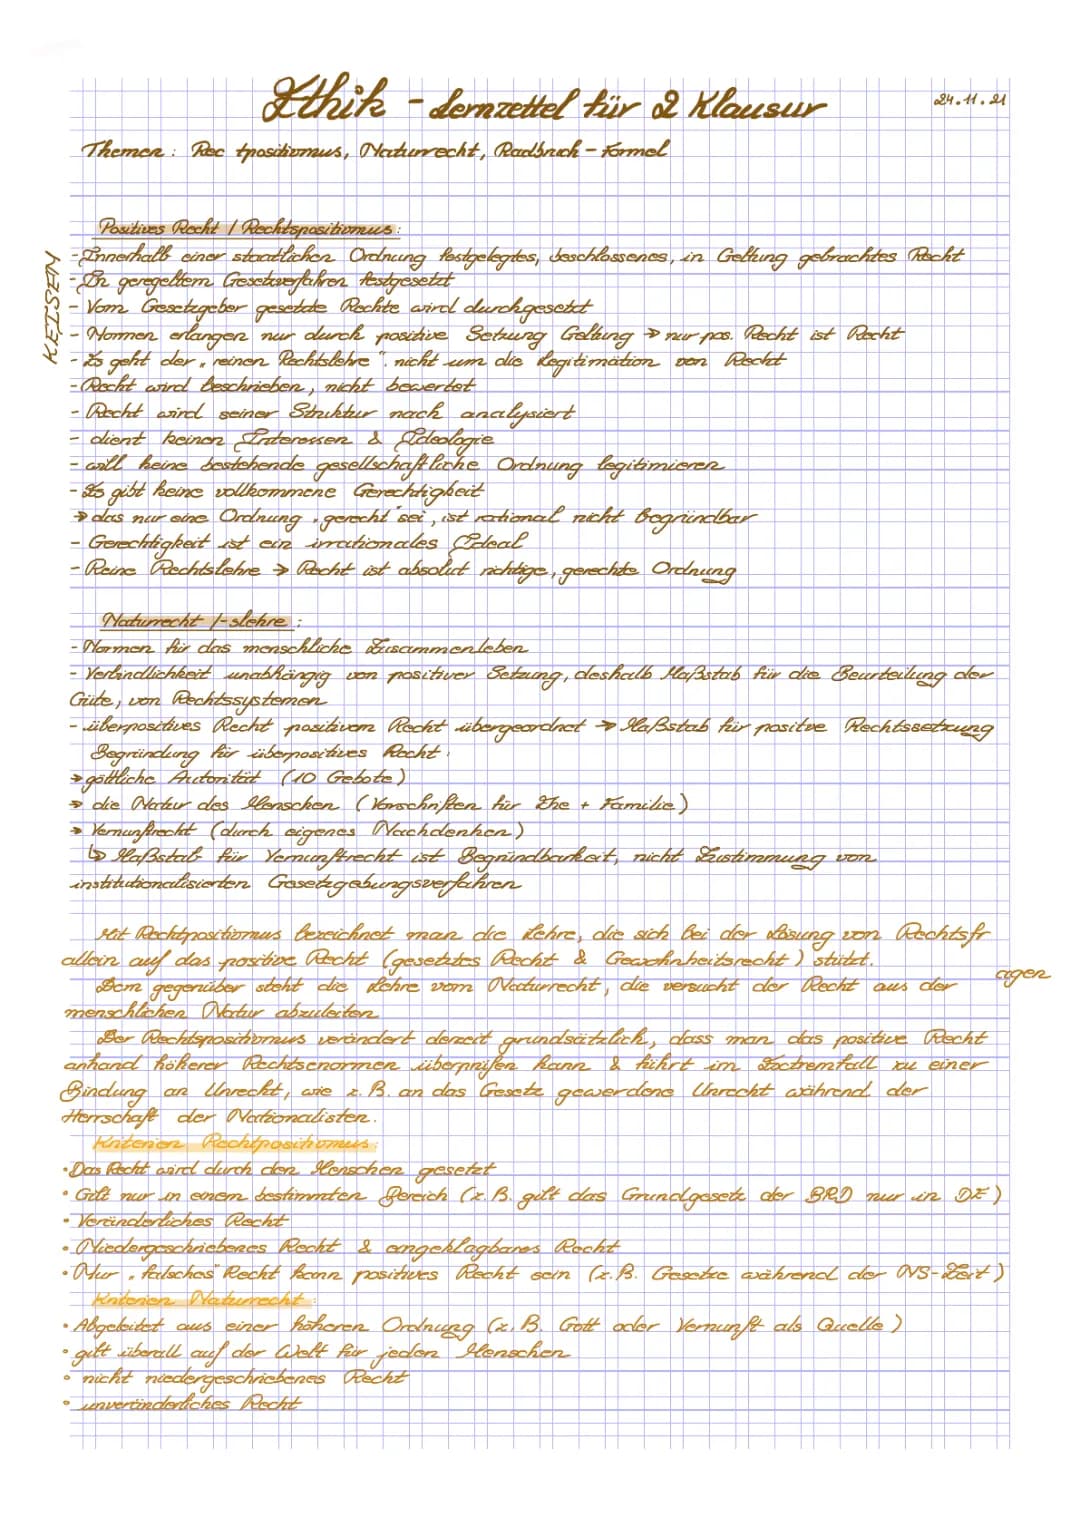 Ethik - Lernzettel für 2 Klausur
24.11.21
Themen: Rec tpositivmus, Naturrecht, Radbruch-Formel
Positives Recht / Rechtspositivmus:
KELSEN
- Innerhalb einer staatlichen Ordnung festgelegtes, beschlossenes, in Geltung gebrachtes Recht
- In geregeltem Gesetzverfahren festgesetzt
- Vom Gesetzgeber gesetzte Rechte wird durchgesetzt
- Normen erlangen nur durch positive Setzung Geltung → nur pos. Recht ist Recht
- Es geht der „reinen Rechtslehre" nicht um die Legitimation von Recht
- Recht wird beschrieben, nicht bewertet
- Recht wird seiner Struktur nach analysiert
- dient keinen Interessen & Ideologie
- will keine bestehende gesellschaftliche Ordnung legitimieren
- Es gibt keine vollkommene Gerechtigkeit
→ das nur eine Ordnung „gerecht" sei, ist rational nicht begründbar
- Gerechtigkeit ist ein irrationales Ideal
- Reine Rechtslehre → Recht ist absolut richtige, gerechte Ordnung
Naturrecht /-slehre:
- Normen für das menschliche Zusammenleben
- Verbindlichkeit unabhängig von positiver Setzung, deshalb Maßstab für die Beurteilung der
Güte, von Rechtssystemen
- überpositives Recht positivem Recht übergeordnet → Maßstab für positve Rechtssetzung
Begründung für überpositives Recht:
→ göttliche Autorität (10 Gebote)
→ die Natur des Menschen (Vorschriften für Ehe + Familie)
→ Vernunftrecht (durch eigenes Nachdenken)
↳ Maßstab für Vernunftrecht ist Begründbarkeit, nicht Zustimmung von
institutionalisierten Gesetzgebungsverfahren
Mit Rechtpositivmus bezeichnet man die Lehre, die sich bei der Lösung von Rechtsfr
agen
allein auf das positive Recht (gesetztes Recht & Gewohnheitsrecht) stützt.
Dem gegenüber steht die Lehre vom Naturrecht, die versucht der Recht aus der
menschlichen Natur abzuleiten
Der Rechtspositivmus verändert derzeit grundsätzlich, dass man das positive Recht
anhand höherer Rechtsenormen überprüfen kann & führt im Extremfall zu einer
Bindung an Unrecht, wie z.B. an das Gesetz gewordene Unrecht während der
Herrschaft der Nationalisten.
Kriterien Rechtpositivmus:
• Das Recht wird durch den Menschen gesetzt
• Gilt nur in einem bestimmten Bereich (z.B. gilt das Grundgesetz der BRD nur in DE)
• Veränderliches Recht
• Niedergeschriebenes Recht & eingeklagbares Recht
• Nur „falsches" Recht kann positives Recht sein (z.B. Gesetze während der NS-Zeit)
Kriterien Naturrecht:
• Abgeleitet aus einer höheren Ordnung (z.B. Gott oder Vernunft als Quelle)
• gilt überall auf der Welt für jeden Menschen
• nicht niedergeschriebenes Recht
• unveränderliches Recht